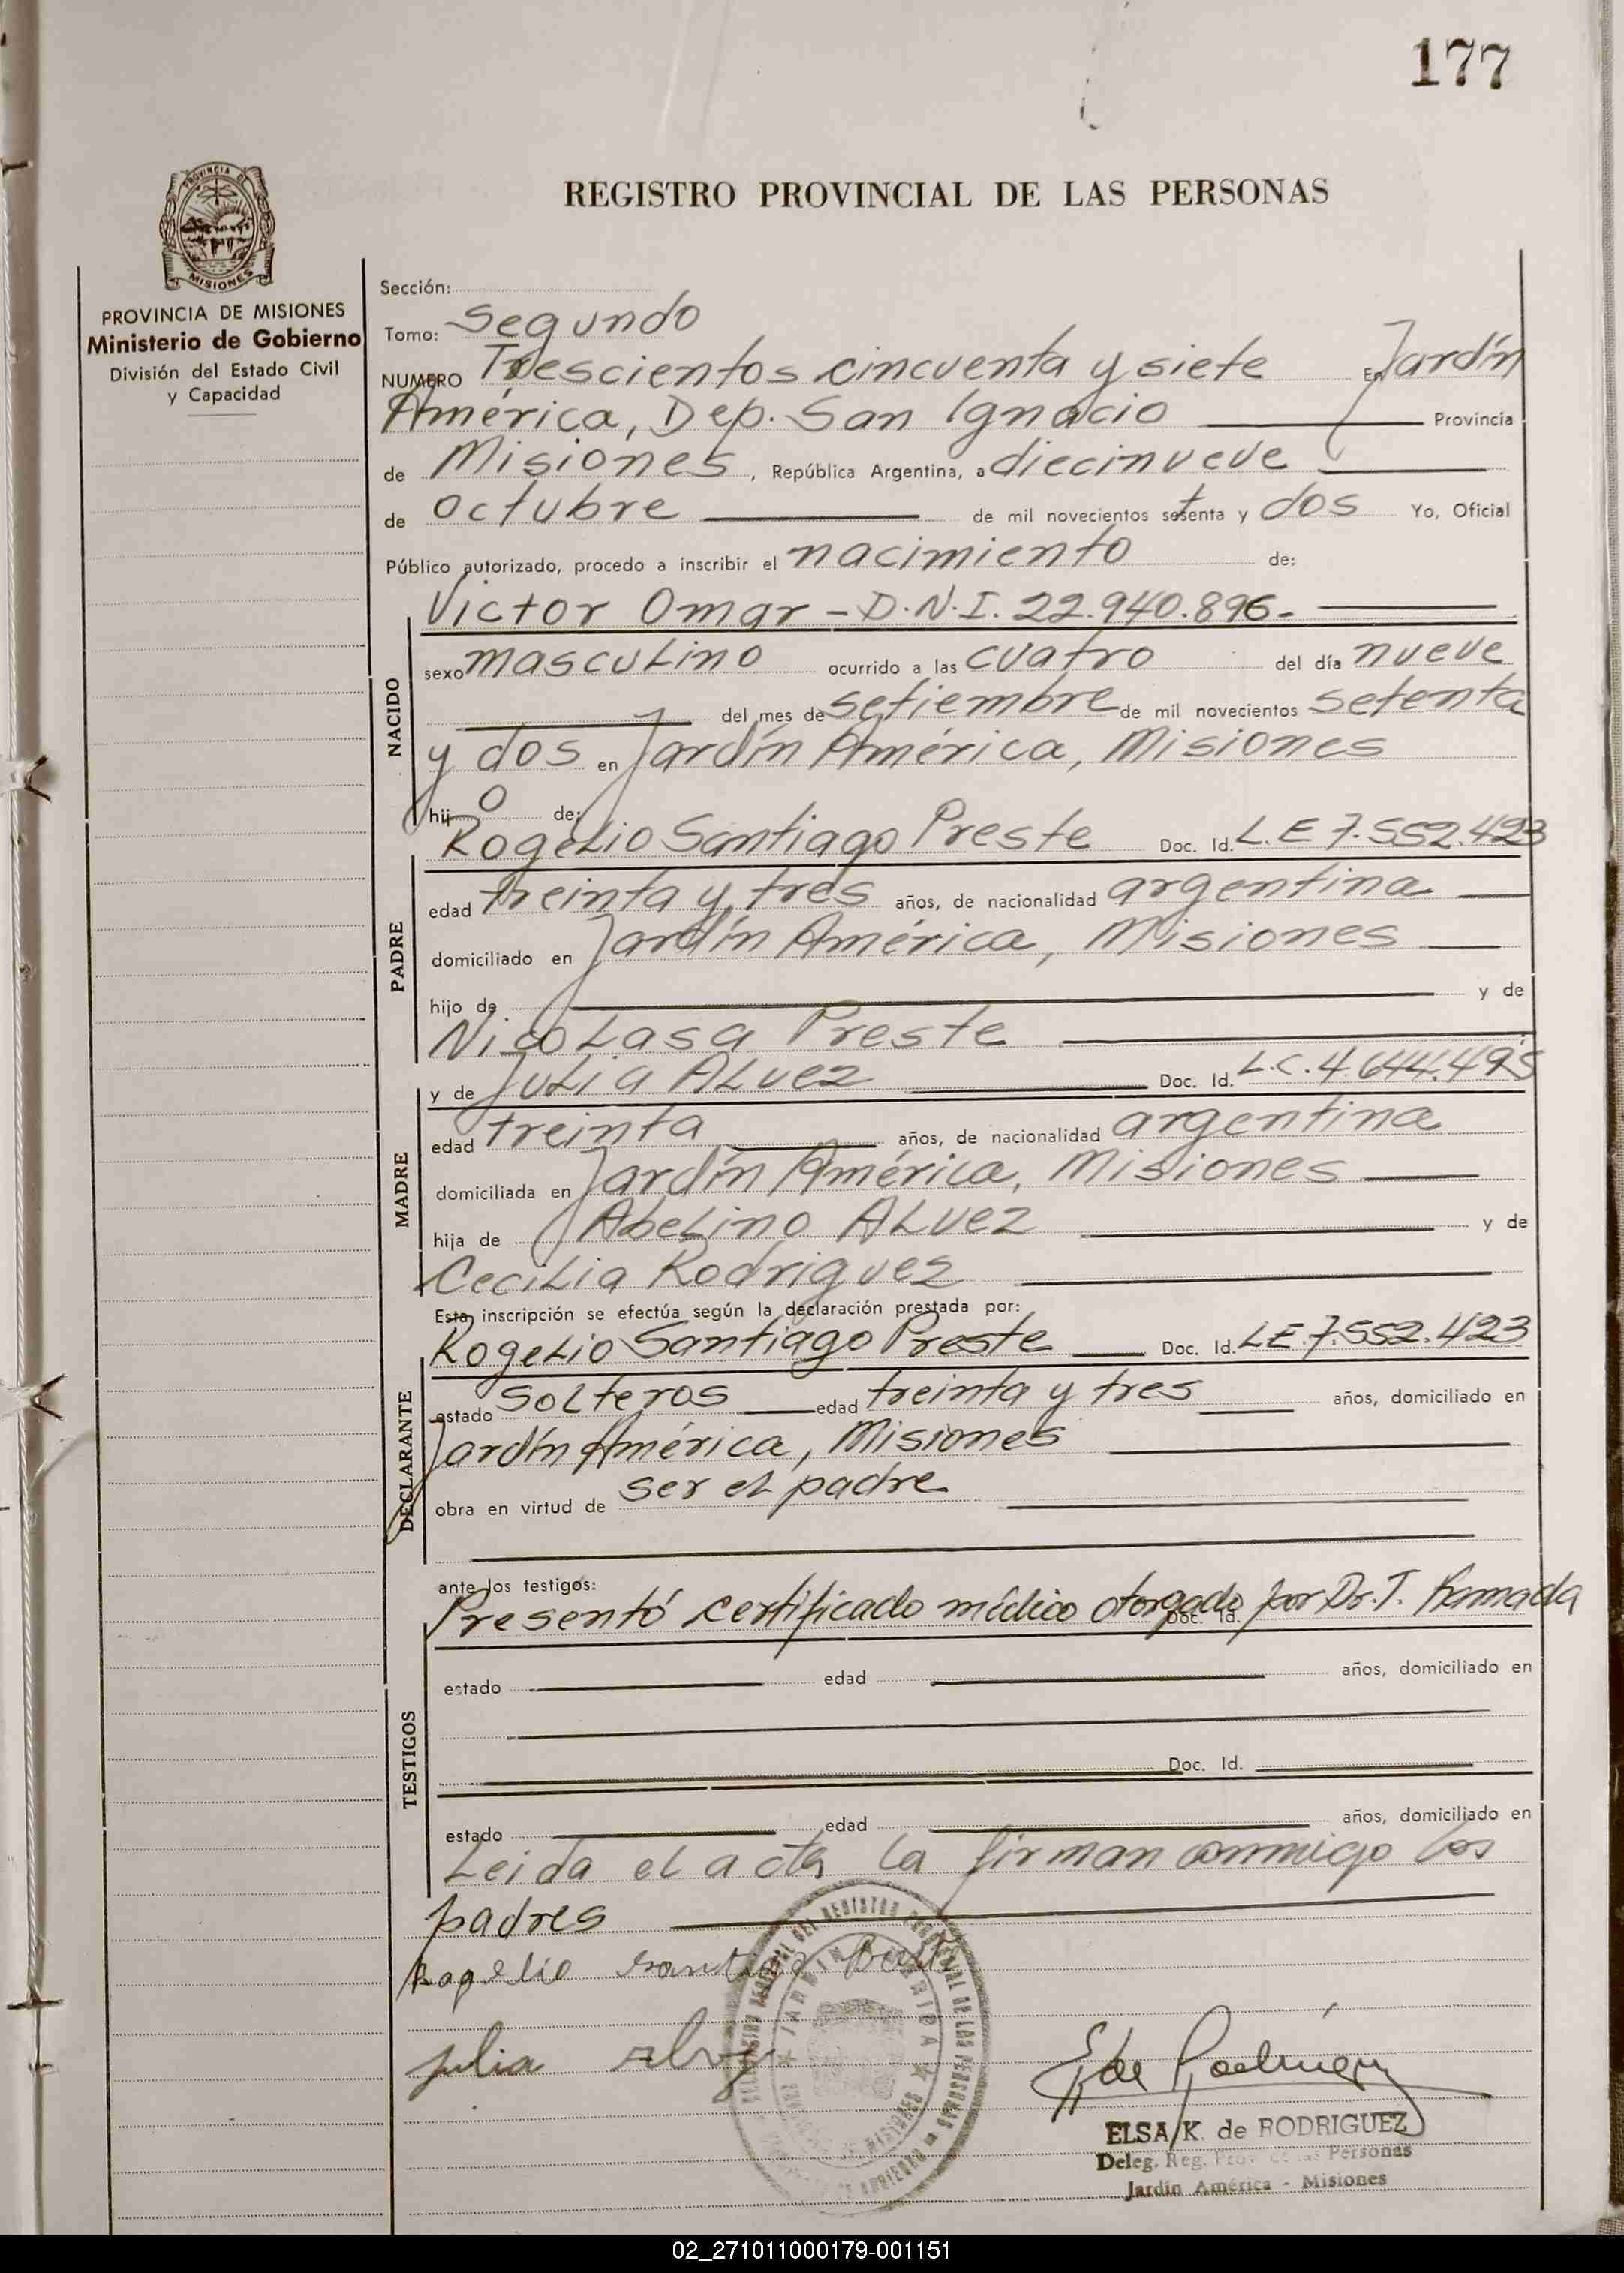 177
REGISTRO PROVINCIAL DE LAS PERSONAS
PROVINCIA DE MISIONES
Ministerio de Gobierno
División del Estado Civil
y Capacidad
Sección:
Tomo: Segundo
NUMERO Trescientos cincuenta y siete En Jardín
América, Dep. San Ignacio Provincia
de Misiones, República Argentina, a diecinueve
de octubre de mil novecientos setenta y dos Yo, Oficial
Público autorizado, procedo a inscribir el nacimiento de:
Victor Omar - D.N.I. 22.940.896-
NACIDO
sexo masculino ocurrido a las cuatro del día nueve
del mes de setiembre de mil novecientos setenta
y dos en Jardín América, Misiones
hijo de:
Rogelio Santiago Preste Doc. Id. L.E 7.552.423
PADRE
edad treinta y tres años, de nacionalidad argentina
domiciliado en Jardín América, Misiones
hijo de y de
Nicolasa Preste
y de Julia Alvez Doc. Id. L.C. 4.644.495
MADRE
edad treinta años, de nacionalidad argentina
domiciliada en Jardín América, Misiones
hija de Abelino Alvez y de
Cecilia Rodriguez
Esta inscripción se efectúa según la declaración prestada por:
Rogelio Santiago Preste Doc. Id. LE.7.552.423
DECLARANTE
estado solteros edad treinta y tres años, domiciliado en
Jardín América, Misiones
obra en virtud de ser el padre
ante los testigos:
Presentó certificado médico otorgado por Dr. T. Doc. Id.
TESTIGOS
estado edad años, domiciliado en
Doc. Id.
estado edad años, domiciliado en
Leida el acta la firman conmigo los
padres
Rogelio Santiago
Julia
ELSA K. de RODRIGUEZ
Deleg. Reg. Prov. de las Personas
Jardín América - Misiones
02_271011000179-001151